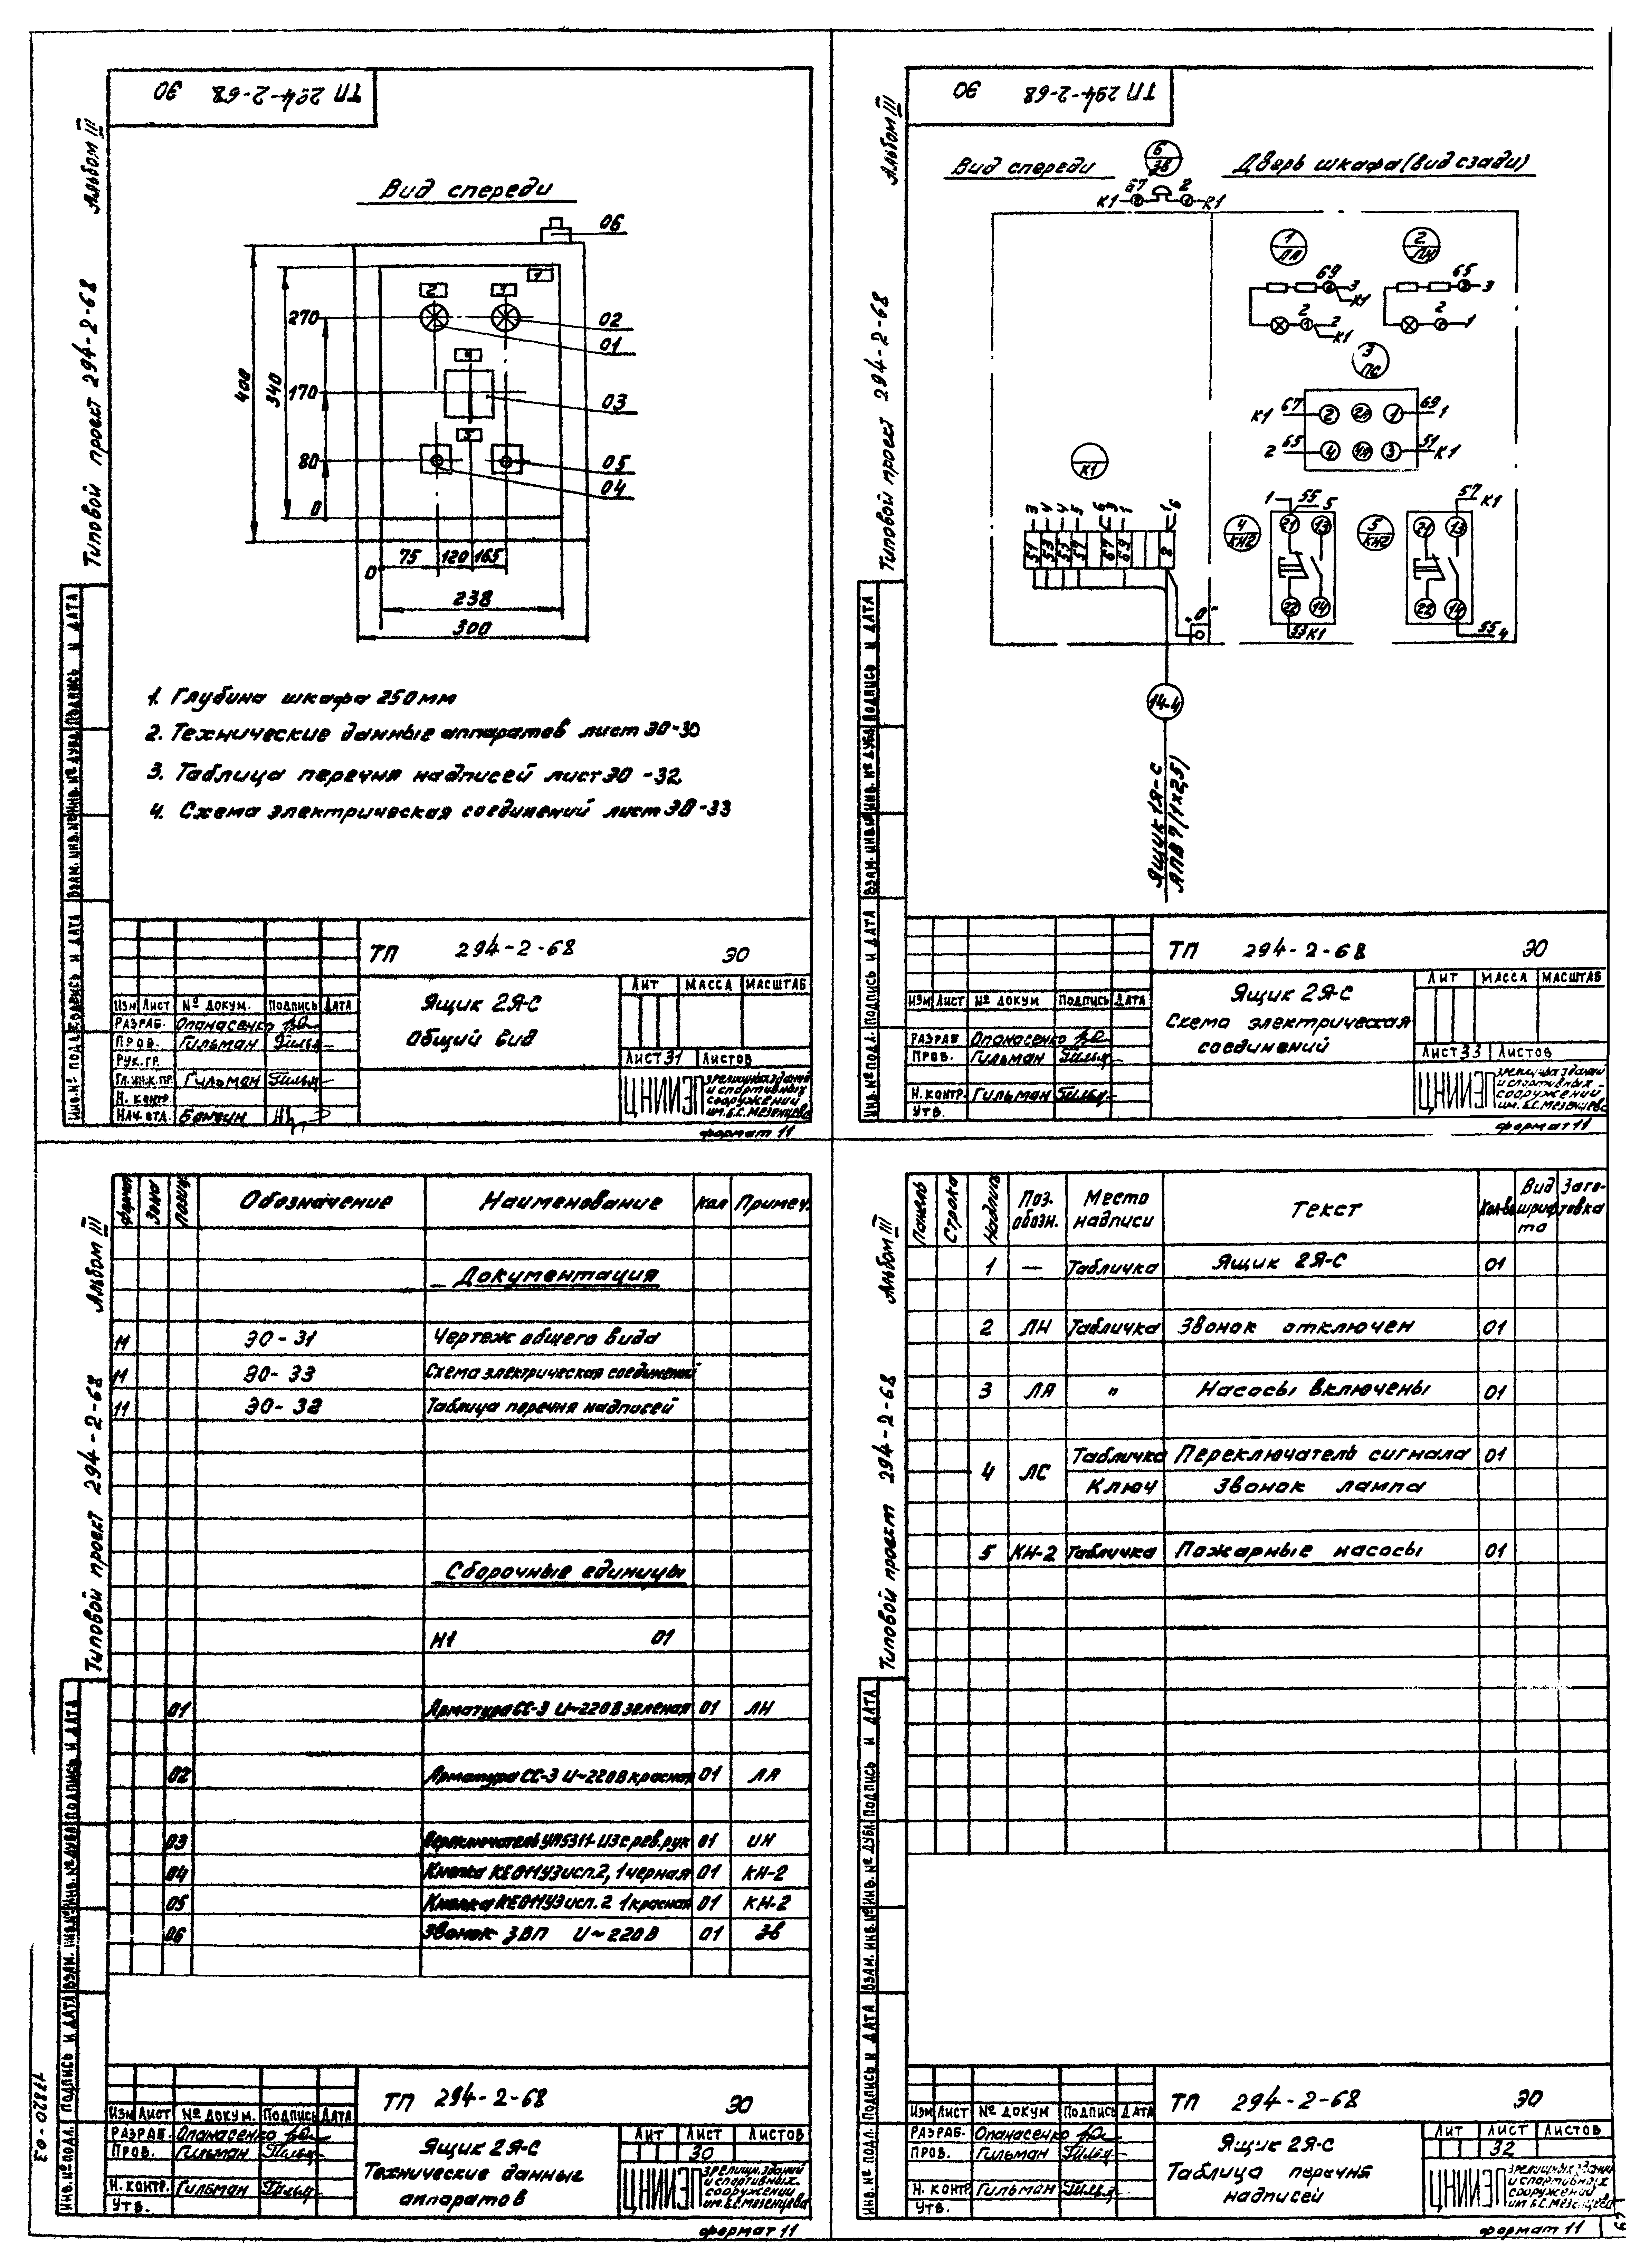 ТП 294-2-68 ЭО
Альбом III
Типовой проект 294-2-68
Вид спереди
06
1
2
3
270
02
01
4
400
340
170
03
5
80
05
04
0
0
75 120 165
238
300
1. Глубина шкафа 250мм
2. Технические данные аппаратов лист ЭО-30
3. Таблица перечня надписей лист ЭО-32.
4. Схема электрическая соединений лист ЭО-33
ТП 294-2-68 ЭО
Изм Лист № докум. Подпись Дата
Разраб. Опанасенко
Пров. Гильман
Рук.гр.
Гл.инж.пр. Гильман
Н. контр.
Нач.отд.
Ящик 2Я-С
Общий вид
Лит Масса Масштаб
Лист 31 Листов
ЦНИИЭП зрелищных зданий
и спортивных
сооружений
им. Б.С. Мезенцева
формат 11
Инв.№ подл. Подпись и дата Взам. инв.№ Инв.№ дубл. Подпись и дата
ТП 294-2-68 ЭО
Альбом III
Типовой проект 294-2-68
Вид спереди
6
ЗВ
Дверь шкафа (вид сзади)
К1 67 2 К1
1
ЛА
2
ЛН
69 3
К1
65 3
2 2
К1
2 1
3
ПС
К1 67 2 2л 1 69 1
2 65 4 3 51 К1
К1
3 4 4 5 6 3 1 1 6
51 53 57 67 69 2
4
КН2
1 55 5
21 13
22 14
53 К1
5
КН2
57 К1
21 13
22 14
55 4
"0"
14-4
Ящик 1Я-С
АПВ 7(1х2,5)
ТП 294-2-68 ЭО
Изм Лист № докум Подпись Дата
Разраб Опанасенко
Пров. Гильман
Н. контр. Гильман
Утв.
Ящик 2Я-С
Схема электрическая
соединений
Лит Масса Масштаб
Лист 33 Листов
ЦНИИЭП зрелищных зданий
и спортивных
сооружений
им. Б.С. Мезенцева
формат 11
Инв.№ подл. Подпись и дата Взам. инв.№ Инв.№ дубл. Подпись и дата
Альбом III
Типовой проект 294-2-68
Формат Зона Позиц. Обозначение Наименование Кол Примеч.
Документация
11 ЭО-31 Чертеж общего вида
11 ЭО-33 Схема электрическая соединений
11 ЭО-32 Таблица перечня надписей
Сборочные единицы
Н1 01
01 Арматура СС-3 U~220В зеленая 01 ЛН
02 Арматура СС-3 U~220В красная 01 ЛА
03 Переключатель УП5311- с рев.рук 01 ИН
04 Кнопка КЕ011У3 исп.2, 1 черная 01 КН-2
05 Кнопка КЕ011У3 исп.2 1 красная 01 КН-2
06 Звонок ЗВП U~220В 01 Зв
17820-03
Инв.№ подл. Подпись и дата Взам. инв.№ Инв.№ дубл. Подпись и дата
ТП 294-2-68 ЭО
Изм Лист № докум. Подпись Дата
Разраб. Опанасенко
Пров. Гильман
Н. контр. Гильман
Утв.
Ящик 2Я-С
Технические данные
аппаратов
Лит Лист Листов
30
ЦНИИЭП зрелищн. зданий
и спортивных
сооружений
им. Б.С. Мезенцева
формат 11
Альбом III
Типовой проект 294-2-68
Панель Строка Надпись Поз. обозн. Место надписи Текст Кол-во Вид шрифта Заготовка
1 — Табличка Ящик 2Я-С 01
2 ЛН Табличка Звонок отключен 01
3 ЛА " Насосы включены 01
4 ЛС Табличка Переключатель сигнала 01
Ключ Звонок лампа
5 КН-2 Табличка Пожарные насосы 01
Инв.№ подл. Подпись и дата Взам. инв.№ Инв.№ дубл. Подпись и дата
ТП 294-2-68 ЭО
Изм Лист № докум Подпись Дата
Разраб. Опанасенко
Пров. Гильман
Н. контр Гильман
Утв.
Ящик 2Я-С
Таблица перечня
надписей
Лит Лист Листов
32
ЦНИИЭП зрелищных зданий
и спортивных
сооружений
им. Б.С. Мезенцева
формат 11